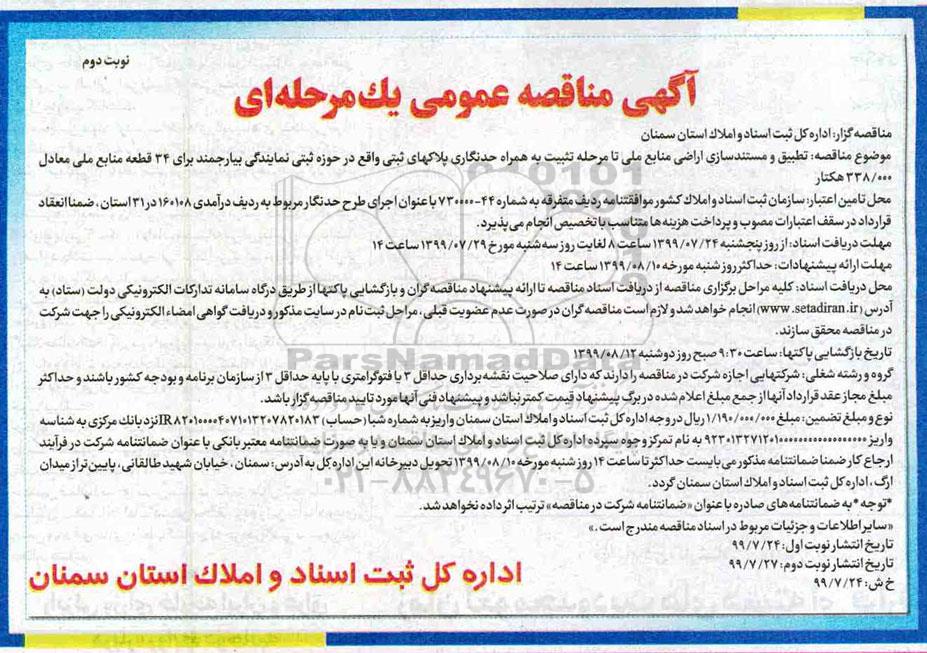 نوبت دوم
آگهی مناقصه عمومی یك مرحله‌ای
مناقصه گزار: اداره كل ثبت اسناد و املاك استان سمنان
موضوع مناقصه: تطبیق و مستندسازی اراضی منابع ملی تا مرحله تثبیت به همراه حدنگاری پلاكهای ثبتی واقع در حوزه ثبتی نمایندگی بیارجمند برای ۳۴ قطعه منابع ملی معادل
۳۳۸/۰۰۰ هكتار
محل تامین اعتبار: سازمان ثبت اسناد و املاك كشور موافقتنامه ردیف متفرقه به شماره ۴۴-۷۳۰۰۰۰ با عنوان اجرای طرح حدنگار مربوط به ردیف درآمدی ۱۶۰۱۰۸ در ۳۱ استان، ضمنا انعقاد
قرارداد در سقف اعتبارات مصوب و پرداخت هزینه ها متناسب با تخصیص انجام می‌پذیرد.
مهلت دریافت اسناد: از روز پنجشنبه ۱۳۹۹/۰۷/۲۴ ساعت ۸ لغایت روز سه شنبه مورخ ۱۳۹۹/۰۷/۲۹ ساعت ۱۴
مهلت ارائه پیشنهادات: حداكثر روز شنبه مورخه ۱۳۹۹/۰۸/۱۰ ساعت ۱۴
محل دریافت اسناد: كلیه مراحل برگزاری مناقصه از دریافت اسناد مناقصه تا ارائه پیشنهاد مناقصه گران و بازگشایی پاكتها از طریق درگاه سامانه تداركات الكترونیكی دولت (ستاد) به
آدرس (www.setadiran.ir) انجام خواهد شد و لازم است مناقصه گران در صورت عدم عضویت قبلی، مراحل ثبت نام در سایت مذكور و دریافت گواهی امضاء الكترونیكی را جهت شركت
در مناقصه محقق سازند.
تاریخ بازگشایی پاكتها: ساعت ۹:۳۰ صبح روز دوشنبه ۱۳۹۹/۰۸/۱۲
گروه و رشته شغلی: شركتهایی اجازه شركت در مناقصه را دارند كه دارای صلاحیت نقشه برداری حداقل ۳ یا فتوگرامتری با پایه حداقل ۳ از سازمان برنامه و بودجه كشور باشند و حداكثر
مبلغ مجاز عقد قرارداد آنها از جمع مبلغ اعلام شده در برگ پیشنهاد قیمت كمتر نباشد و پیشنهاد فنی آنها مورد تایید مناقصه گزار باشد.
نوع و مبلغ تضمین: مبلغ ۱/۱۹۰/۰۰۰/۰۰۰ ریال در وجه اداره كل ثبت اسناد و املاك استان سمنان واریز به شماره شبا (حساب) IR۸۲۰۱۰۰۰۰۴۰۷۱۰۱۳۲۰۷۸۲۰۱۸۳ نزد بانك مركزی به شناسه
واریز به نام تمركز وجوه سپرده اداره كل ثبت اسناد و املاك استان سمنان و یا به صورت ضمانتنامه معتبر بانكی با عنوان ضمانتنامه شركت در فرآیند
ارجاع كار ضمنا ضمانتنامه مذكور می بایست حداكثر تا ساعت ۱۴ روز شنبه مورخه ۱۳۹۹/۰۸/۱۰ تحویل دبیرخانه این اداره كل به آدرس: سمنان، خیابان شهید طالقانی، پایین تر از میدان
ارگ، اداره كل ثبت اسناد و املاك استان سمنان گردد.
*توجه* به ضمانتنامه های صادره با عنوان «ضمانتنامه شركت در مناقصه» ترتیب اثر داده نخواهد شد.
«سایر اطلاعات و جزئیات مربوط در اسناد مناقصه مندرج است.»
تاریخ انتشار نوبت اول: ۹۹/۷/۲۴
تاریخ انتشار نوبت دوم: ۹۹/۷/۲۷
خ ش: ۹۹/۷/۲۴
اداره كل ثبت اسناد و املاك استان سمنان
ParsNamadData
۰۲۱-۸۸۳۴۹۶۷۰-۵